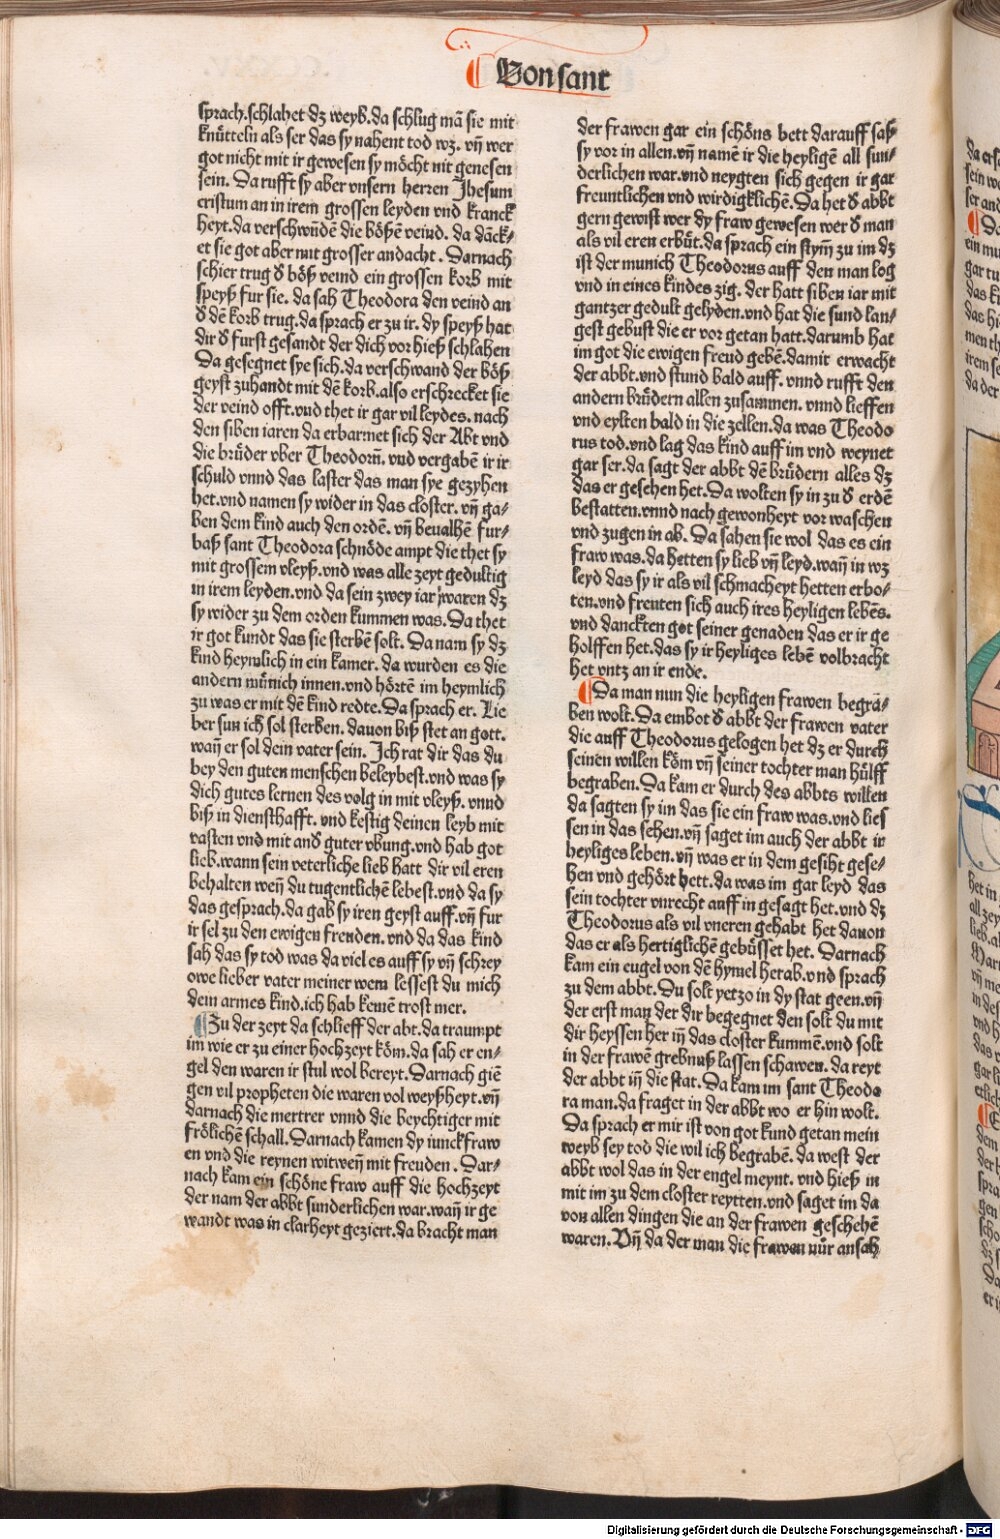 Von sant
sprach. schlahet dz weyb. da schlug mā sie mit
knütteln als ser das sy nahent tod wz. vn̄ wer
got nicht mit ir gewesen sy möcht nit genesen
sein. Da rufft sy aber vnsern herren Jhesum
cristum an in irem grossen leyden vnd kranck
heyt. da verschwūdē die bößē veind. da dāck-
et sie got aber mit grosser andacht. Darnach
schier trug d̄ böß veind ein grossen korb mit
speyß fur sie. da sah Theodora den veind an
d̄ dē korb trug. da sprach er zu ir. dy speyß hat
dir d̄ furst gesandt der dich vor hieß schlahen
Da gesegnet sye sich. da verschwand der böß
geyst zuhandt mit dē korb. also erschrecket sie
der veind offt. vnd thet ir gar vil leydes. nach
den siben iaren da erbarmet sich der Abt vnd
die brüder vber Theodorū. vnd vergabē ir ir
schuld vnnd das laster das man sye gezyhen
het. vnd namen sy wider in das closter. vn̄ ga-
ben dem kind auch den ordē. vn̄ beualhē fur-
baß sant Theodora schnöde ampt die thet sy
mit grossem vleyß. vnd was alle zeyt gedultig
in irem leyden. vnd da sein zwey iar waren dz
sy wider zu dem orden kummen was. Da thet
ir got kundt das sie sterbē solt. Da nam sy dz
kind heymlich in ein kamer. da wurden es die
andern münich innen. vnd hörtē im heymlich
zu was er mit dē kind redte. Da sprach er. Lie
ber sun ich sol sterben. dauon biß stet an gott.
wan̄ er sol dein vater sein. Ich rat dir das du
bey den guten menschen beleybest. vnd was sy
dich gutes lernen des volg in mit vleyß. vnnd
biß in diensthafft. vnd kestig deinen leyb mit
vasten vnd mit and̄ guter vbung. vnd hab got
lieb. wann sein veterliche lieb hatt dir vil eren
behalten wen̄ du tugentlichē lebest. vnd da sy
das gesprach. da gab sy iren geyst auff. vn̄ fur
ir sel zu den ewigen freuden. vnd da das kind
sah das sy tod was da viel es auff sy vn̄ schrey
owe lieber vater meiner wem lessest du mich
dem armes kind. ich hab keinē trost mer.
Zu der zeyt da schlieff der abt. da traumpt
im wie er zu einer hochzeyt köm. da sah er en-
gel den waren ir stul wol bereyt. Darnach giē
gen vil propheten die waren vol weyßheyt. vn̄
darnach die mertrer vnnd die beychtiger mit
frölichē schall. Darnach kamen dy iunckfraw
en vnd die reynen witwen̄ mit freuden. Dar-
nach kam ein schöne fraw auff die hochzeyt
der nam der abbt sunderlichen war. wan̄ ir ge
wandt was in clarheyt geziert. da bracht man
der frawen gar ein schöns bett darauff saß
sy vor in allen. vn̄ namē ir die heyligē all sun-
derlichen war. vnd neygten sich gegen ir gar
freuntlichen vnd wirdigklichē. Da het d̄ abbt
gern gewist wer dy fraw gewesen wer d̄ man
als vil eren erbüt. da sprach ein stym̄ zu im dz
ist der munich Theodorus auff den man log
vnd in eines kindes zig. der hatt siben iar mit
gantzer gedult gelyden. vnd hat die sund lan-
gest gebust die er vor getan hatt. darumb hat
im got die ewigen freud gebē. damit erwacht
der abbt. vnd stund bald auff. vnnd rufft den
andern brüdern allen zusammen. vnnd lieffen
vnd eylten bald in die zellen. da was Theodo
rus tod. vnd lag das kind auff im vnd weynet
gar ser. da sagt der abbt dē brüdern alles dz
das er gesehen het. Da wolten sy in zu d̄ erdē
bestatten. vnnd nach gewonheyt vor waschen
vnd zugen in ab. Da sahen sie wol das es ein
fraw was. da hetten sy lieb vn̄ leyd. wan̄ in wz
leyd das sy ir als vil schmacheyt hetten erbo-
ten. vnd freuten sich auch ires heyligen lebēs.
vnd danckten got seiner genaden das er ir ge
holffen het. das sy ir heyliges lebē volbracht
het vntz an ir ende.
Da man nun die heyligen frawen begrā-
ben wolt. Da embot d̄ abbt der frawen vater
die auff Theodorus gelogen het dz er durch
seinen willen köm vn̄ seiner tochter man hülff
begraben. Da kam er durch des abbts willen
da sagten sy im das sie ein fraw was. vnd lies
sen in das sehen. vn̄ saget im auch der abbt ir
heyliges leben. vn̄ was er in dem gesiht gese-
hen vnd gehört hett. da was im gar leyd das
sein tochter vnrecht auff in gesagt het. vnd dz
Theodorus als vil vneren gehabt het dauon
das er als hertiglichē gebüsset het. Darnach
kam ein engel von dē hymel herab. vnd sprach
zu dem abbt. Du solt yetzo in dy stat geen. vn̄
der erst man der dir begegnet den solt du mit
dir heyssen her in̄ das closter kummē. vnd solt
in der frawē grebnuß lassen schawen. da reyt
der abbt in̄ die stat. Da kam im sant Theodo
ra man. da fraget in der abbt wo er hin wolt.
Da sprach er mir ist von got kund getan mein
weyb sey tod die wil ich begrabē. da west der
abbt wol das in der engel meynt. vnd hieß in
mit im zu dem closter reytten. vnd saget im da
von allen dingen die an der frawen geschehē
waren. Vn̄ da der man die frawen nür ansah
Digitalisierung gefördert durch die Deutsche Forschungsgemeinschaft - DFG